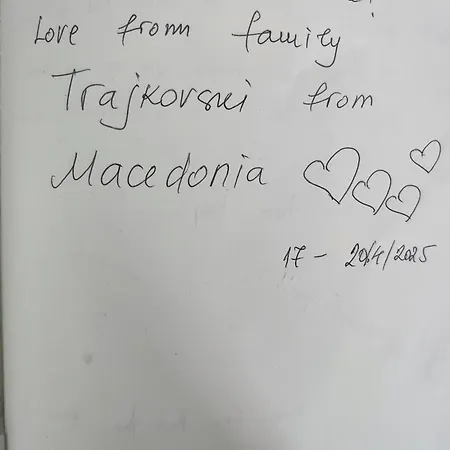 Love from family
Trajkovski from
Macedonia
17 - 20/4/2025